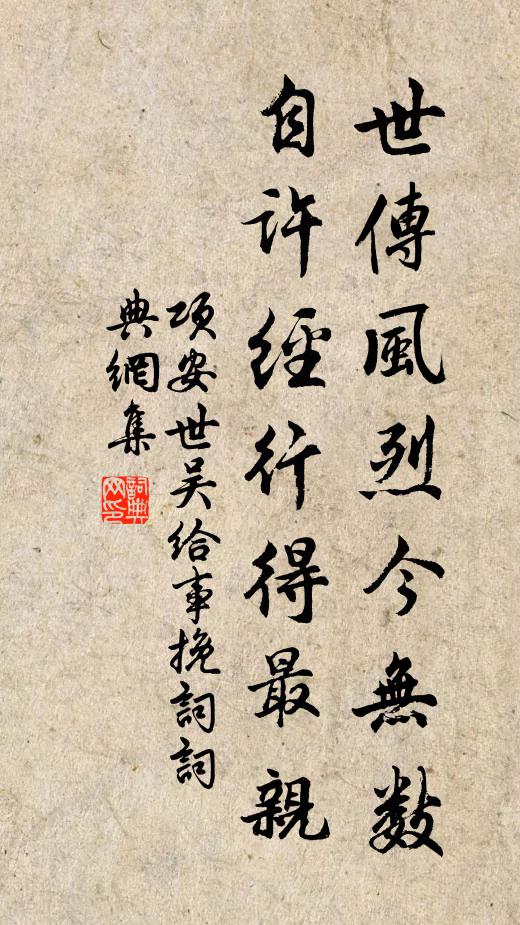 世傳風烈今無數
自許經行得最親
項安世吴給事挽詞詞
典網集
詞典
网印